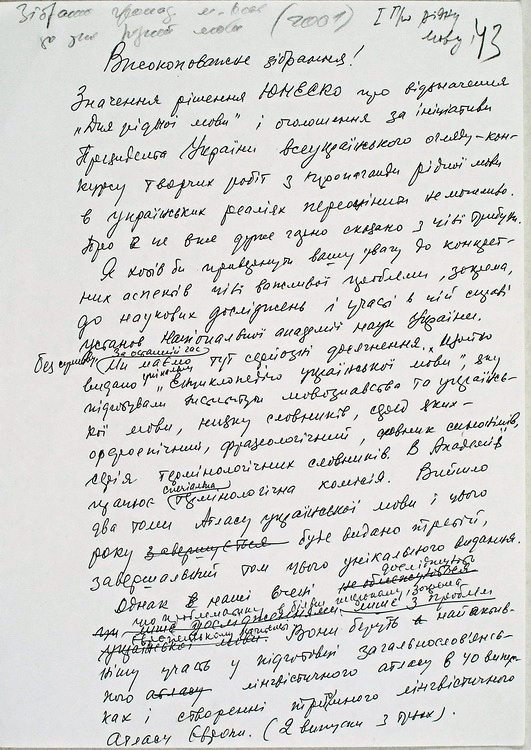 Зібрання громад
(2001)
І Про рідну
мову
43
Високоповажне зібрання!
Значення рішення ЮНЕСКО про відзначення
„Дня рідної мови" і оголошення за ініціативи
Президента України всеукраїнського огляду-кон-
курсу творчих робіт з пропаганди рідної мови
в українських реаліях переоцінити неможливо.
Про це вже дуже гарно сказано з цієї трибуни.
Я хотів би привернути вашу увагу до конкрет-
них аспектів цієї важливої проблеми, зокрема,
до наукових досліджень і участі в цій справі
установ Національної академії наук України.
Без сумніву, за останній час
Ми маємо тут серйозні досягнення. Щойно
унікальну
видано „Енциклопедію української мови", яку
підготували інститути мовознавства та українсь-
кої мови, низку словників, серед яких -
орфоепічний, фразеологічний, словник синонімів,
серія термінологічних словників. В Академії
спеціальна
працює термінологічна комісія. Вийшло
два томи Атласу української мови і цього
року завершується буде видано третій,
завершальний том цього унікального видання.
Однак наші вчені не обмежуються
досліджують
цю проблематику в більш широкому, зокрема
лише дослідженнями лише з проблем
української мови. Вони беруть найактив-
нішу участь у підготовці загальнослов'янсь-
кого атласу лінгвістичного атласу в 40 випус-
ках і створенні первинного лінгвістичного
Атласу Європи. (2 випуски з